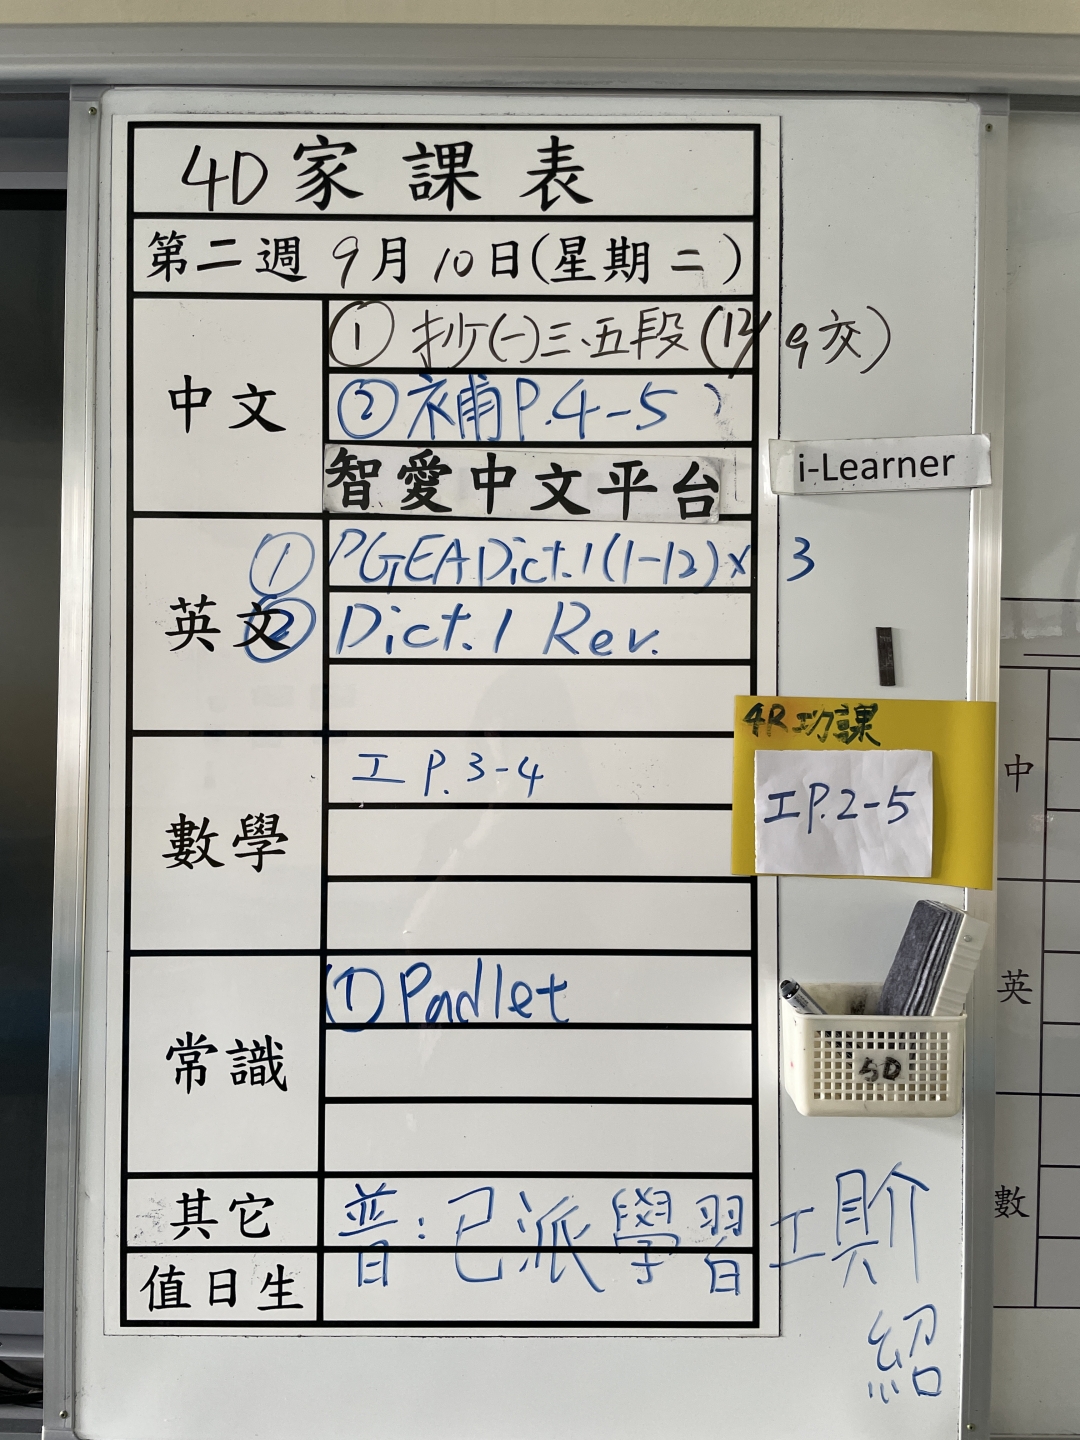 4D 家課表
第二週 9月10日(星期二)
中文
① 抄(一)三、五段(12/9交)
② 補P.4-5
智愛中文平台
i-Learner
英文
① PGEA Dict.1(1-12)×3
② Dict.1 Rev.
數學
工 P.3-4
4R功課
工P.2-5
常識
① Padlet
5D
其它
普:已派學習工具介紹
值日生
中
英
數